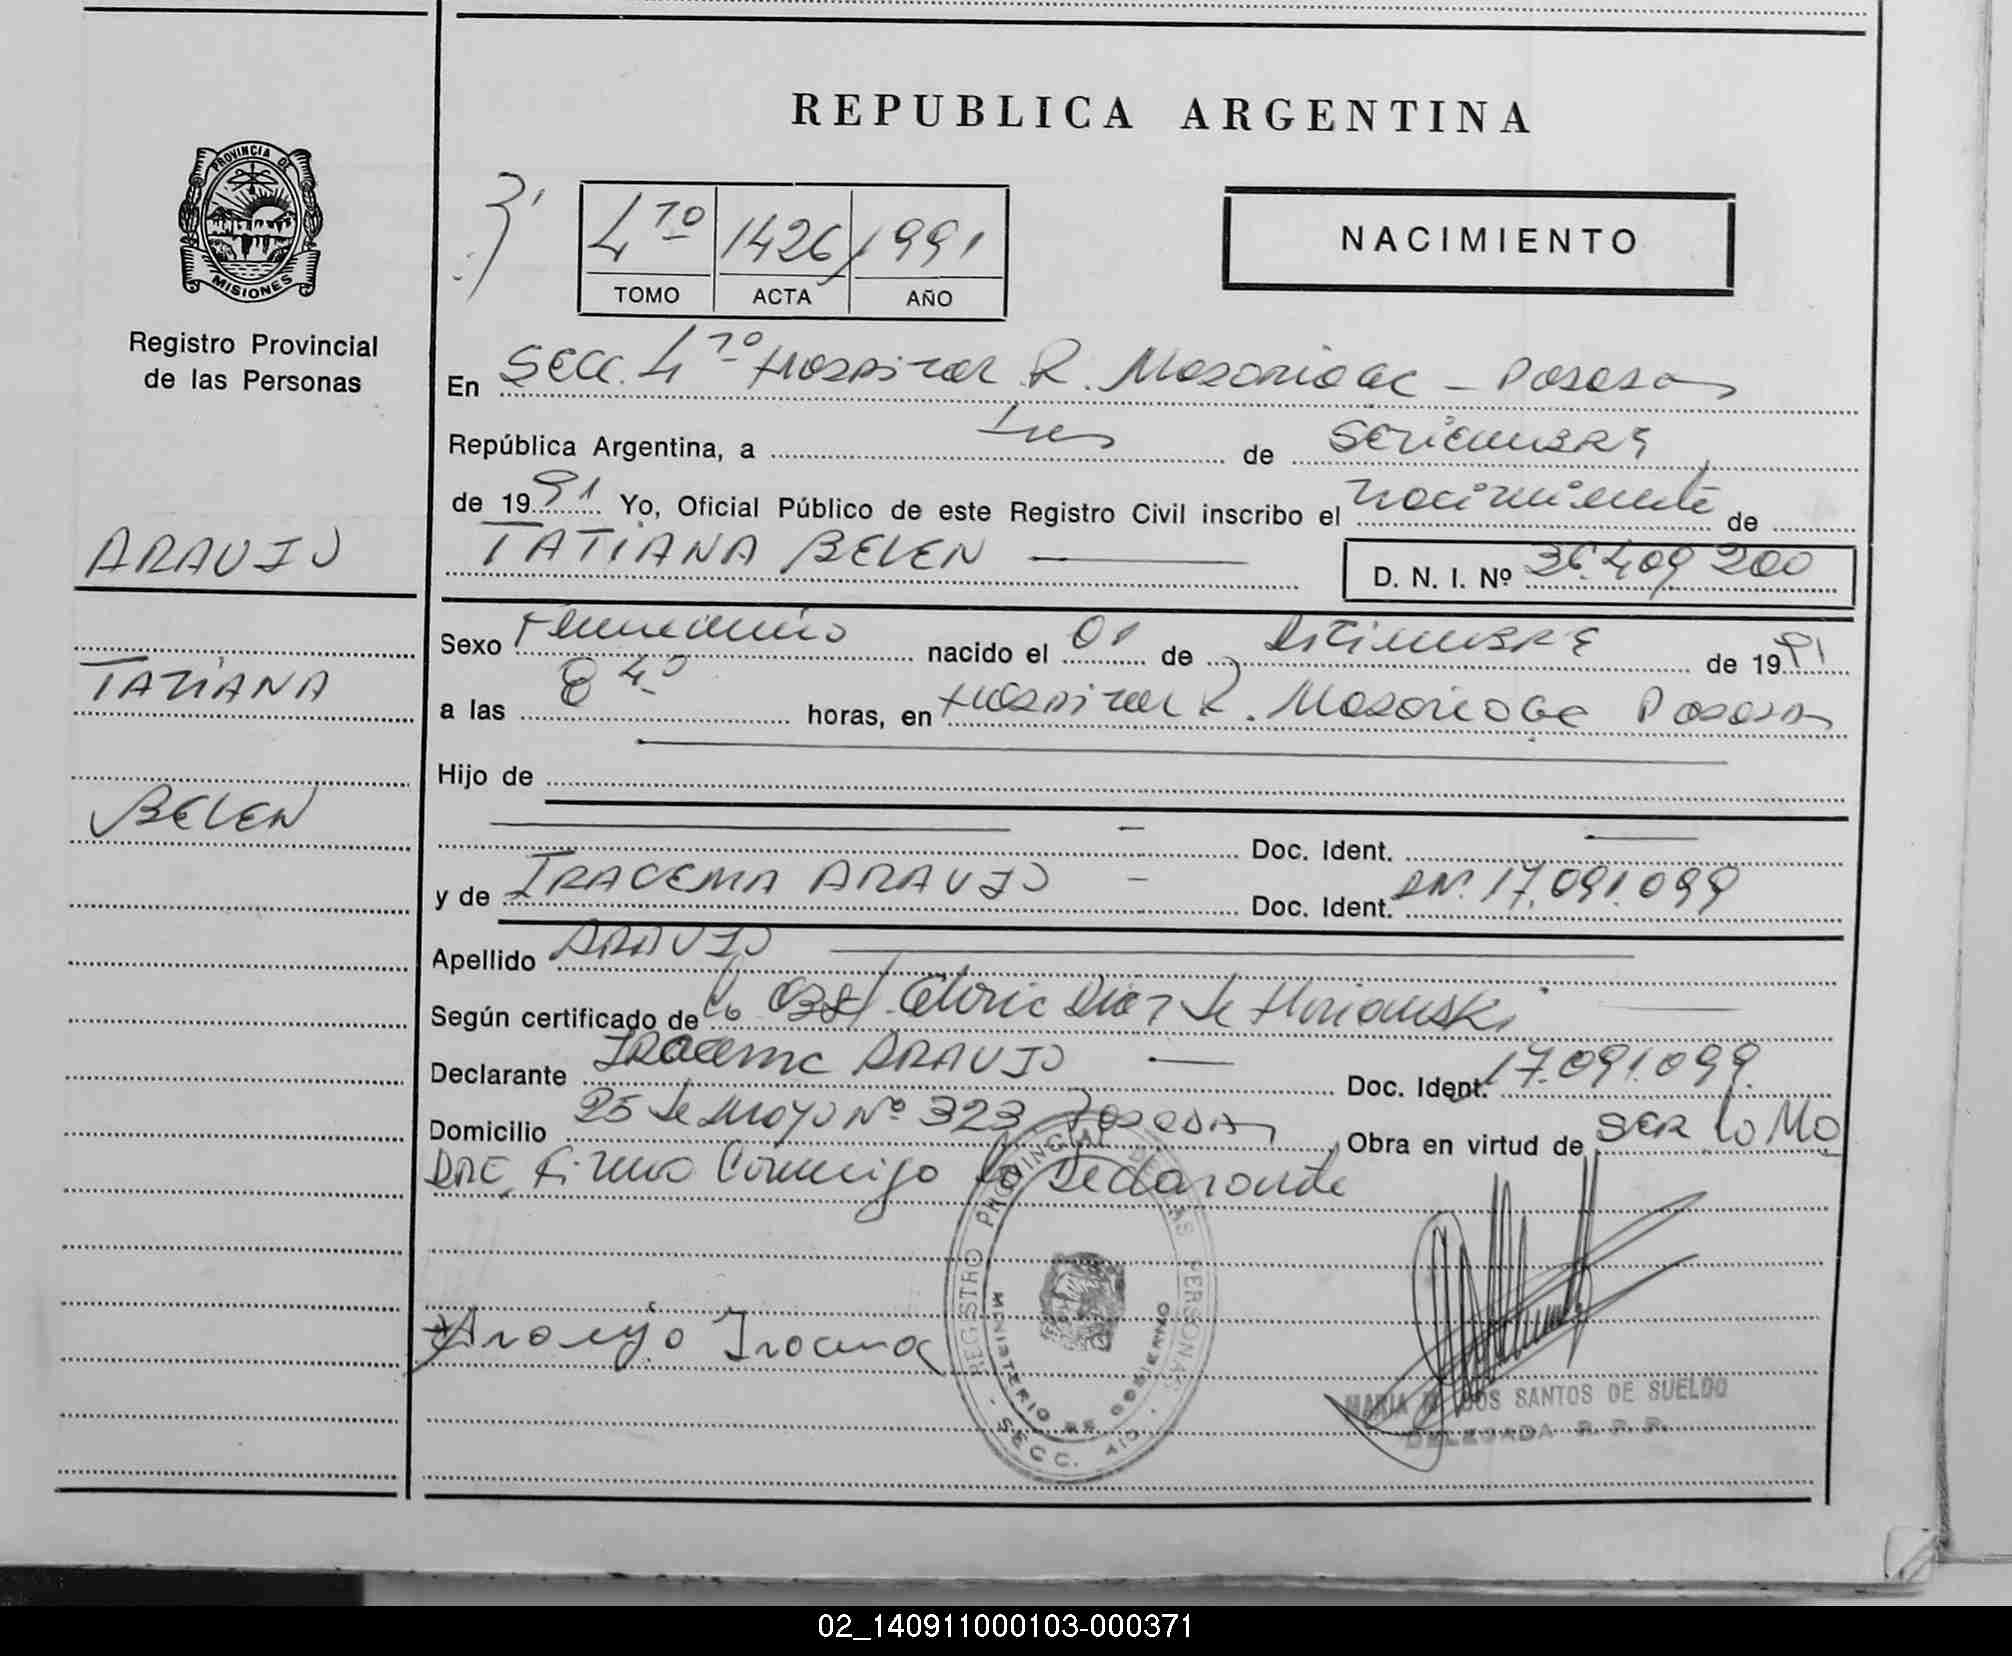 REPUBLICA ARGENTINA
PROVINCIA DE
MISIONES
Registro Provincial
de las Personas
4to 1426 1991
TOMO ACTA AÑO
NACIMIENTO
En Secc. 4to Hospital R. Madariaga - Posadas
República Argentina, a tres de SETIEMBRE
de 1991 Yo, Oficial Público de este Registro Civil inscribo el nacimiento de
TATIANA BELEN D. N. I. Nº 36.409.200
ARAUJO
TATIANA
BELEN
Sexo Femenino nacido el 01 de SETIEMBRE de 1991
a las 8 40 horas, en Hospital R. Madariaga Posadas
Hijo de
Doc. Ident.
y de IRACEMA ARAUJO Doc. Ident. DNI. 17.091.099
Apellido ARAUJO
Según certificado de la Obst. Diaz de
Declarante Iracema ARAUJO Doc. Ident. 17.091.099
Domicilio 25 de Mayo Nº 323 Posadas, Obra en virtud de SER la MA
DRE, Firma Conmigo la Declarante
Araujo Iracema
REGISTRO PROVINCIAL DE LAS PERSONAS
MINISTERIO DE GOBIERNO
SECC. 4ta
MARIA DOS SANTOS DE SUELDO
DELEGADA R. P. P.
02_140911000103-000371